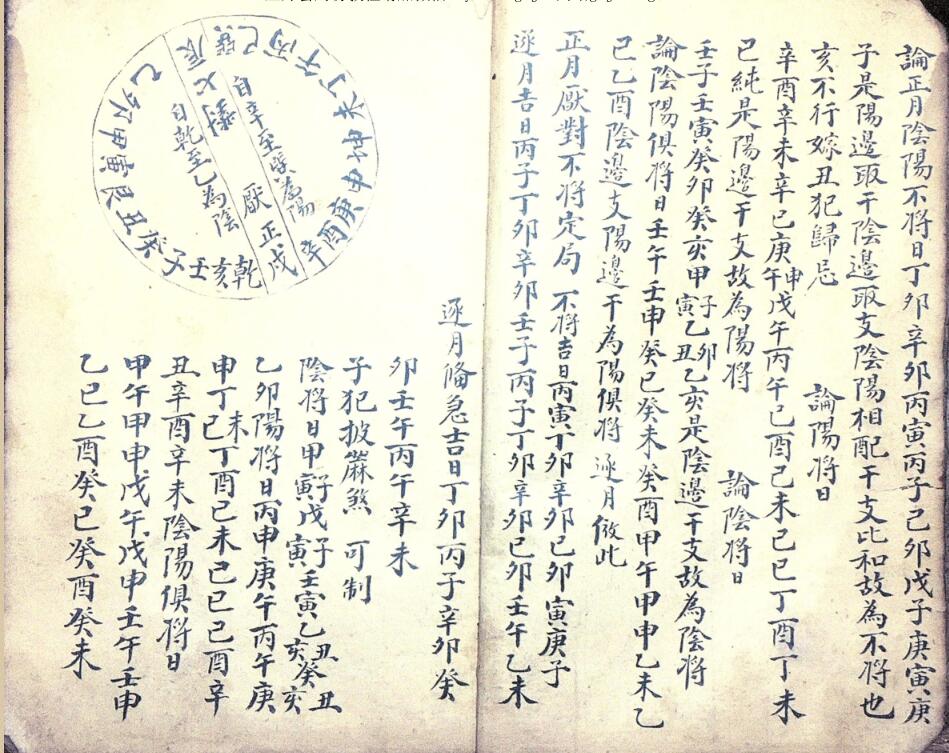 論正月陰陽不將日丁卯辛卯丙寅丙子己卯戊子庚寅庚
子是陽邊取干陰邊取支陰陽相配干支比和故為不將也
亥不行嫁丑犯歸忌 論陽將日
辛酉辛未辛巳庚午申戊午丙午己酉己未己巳丁酉丁未
巳純是陽邊干支故為陽將 論陰將日
壬子壬寅癸卯癸亥甲寅子乙丑卯乙亥是陰邊干支故為陰將
論陰陽俱將日壬午壬申癸巳癸未癸酉甲午甲申乙未乙
巳乙酉陰邊支陽邊干為陽俱將 逐月倣此
正月厭對不將定局 不將吉日丙寅丁卯辛卯己卯寅庚子
逐月吉日丙子丁卯辛卯壬子丙子丁卯辛卯己卯壬午乙未
逐月俻急吉日丁卯丙子辛卯癸
卯壬午丙午辛未
子犯披蔴煞 可制
陰將日甲寅子戊子寅壬寅乙丑亥癸丑亥
乙卯陽將日丙申庚午丙午庚
申丁巳未丁酉己未己巳己酉辛
丑辛酉辛未陰陽俱將日
甲午甲申戊午戊申壬午壬申
乙巳乙酉癸巳癸酉癸未
自辛至巽為陽
厭正戌
自乾至乙為陰
辰
巽巳丙午丁未坤申庚酉辛
乾亥壬子癸丑艮寅甲卯乙